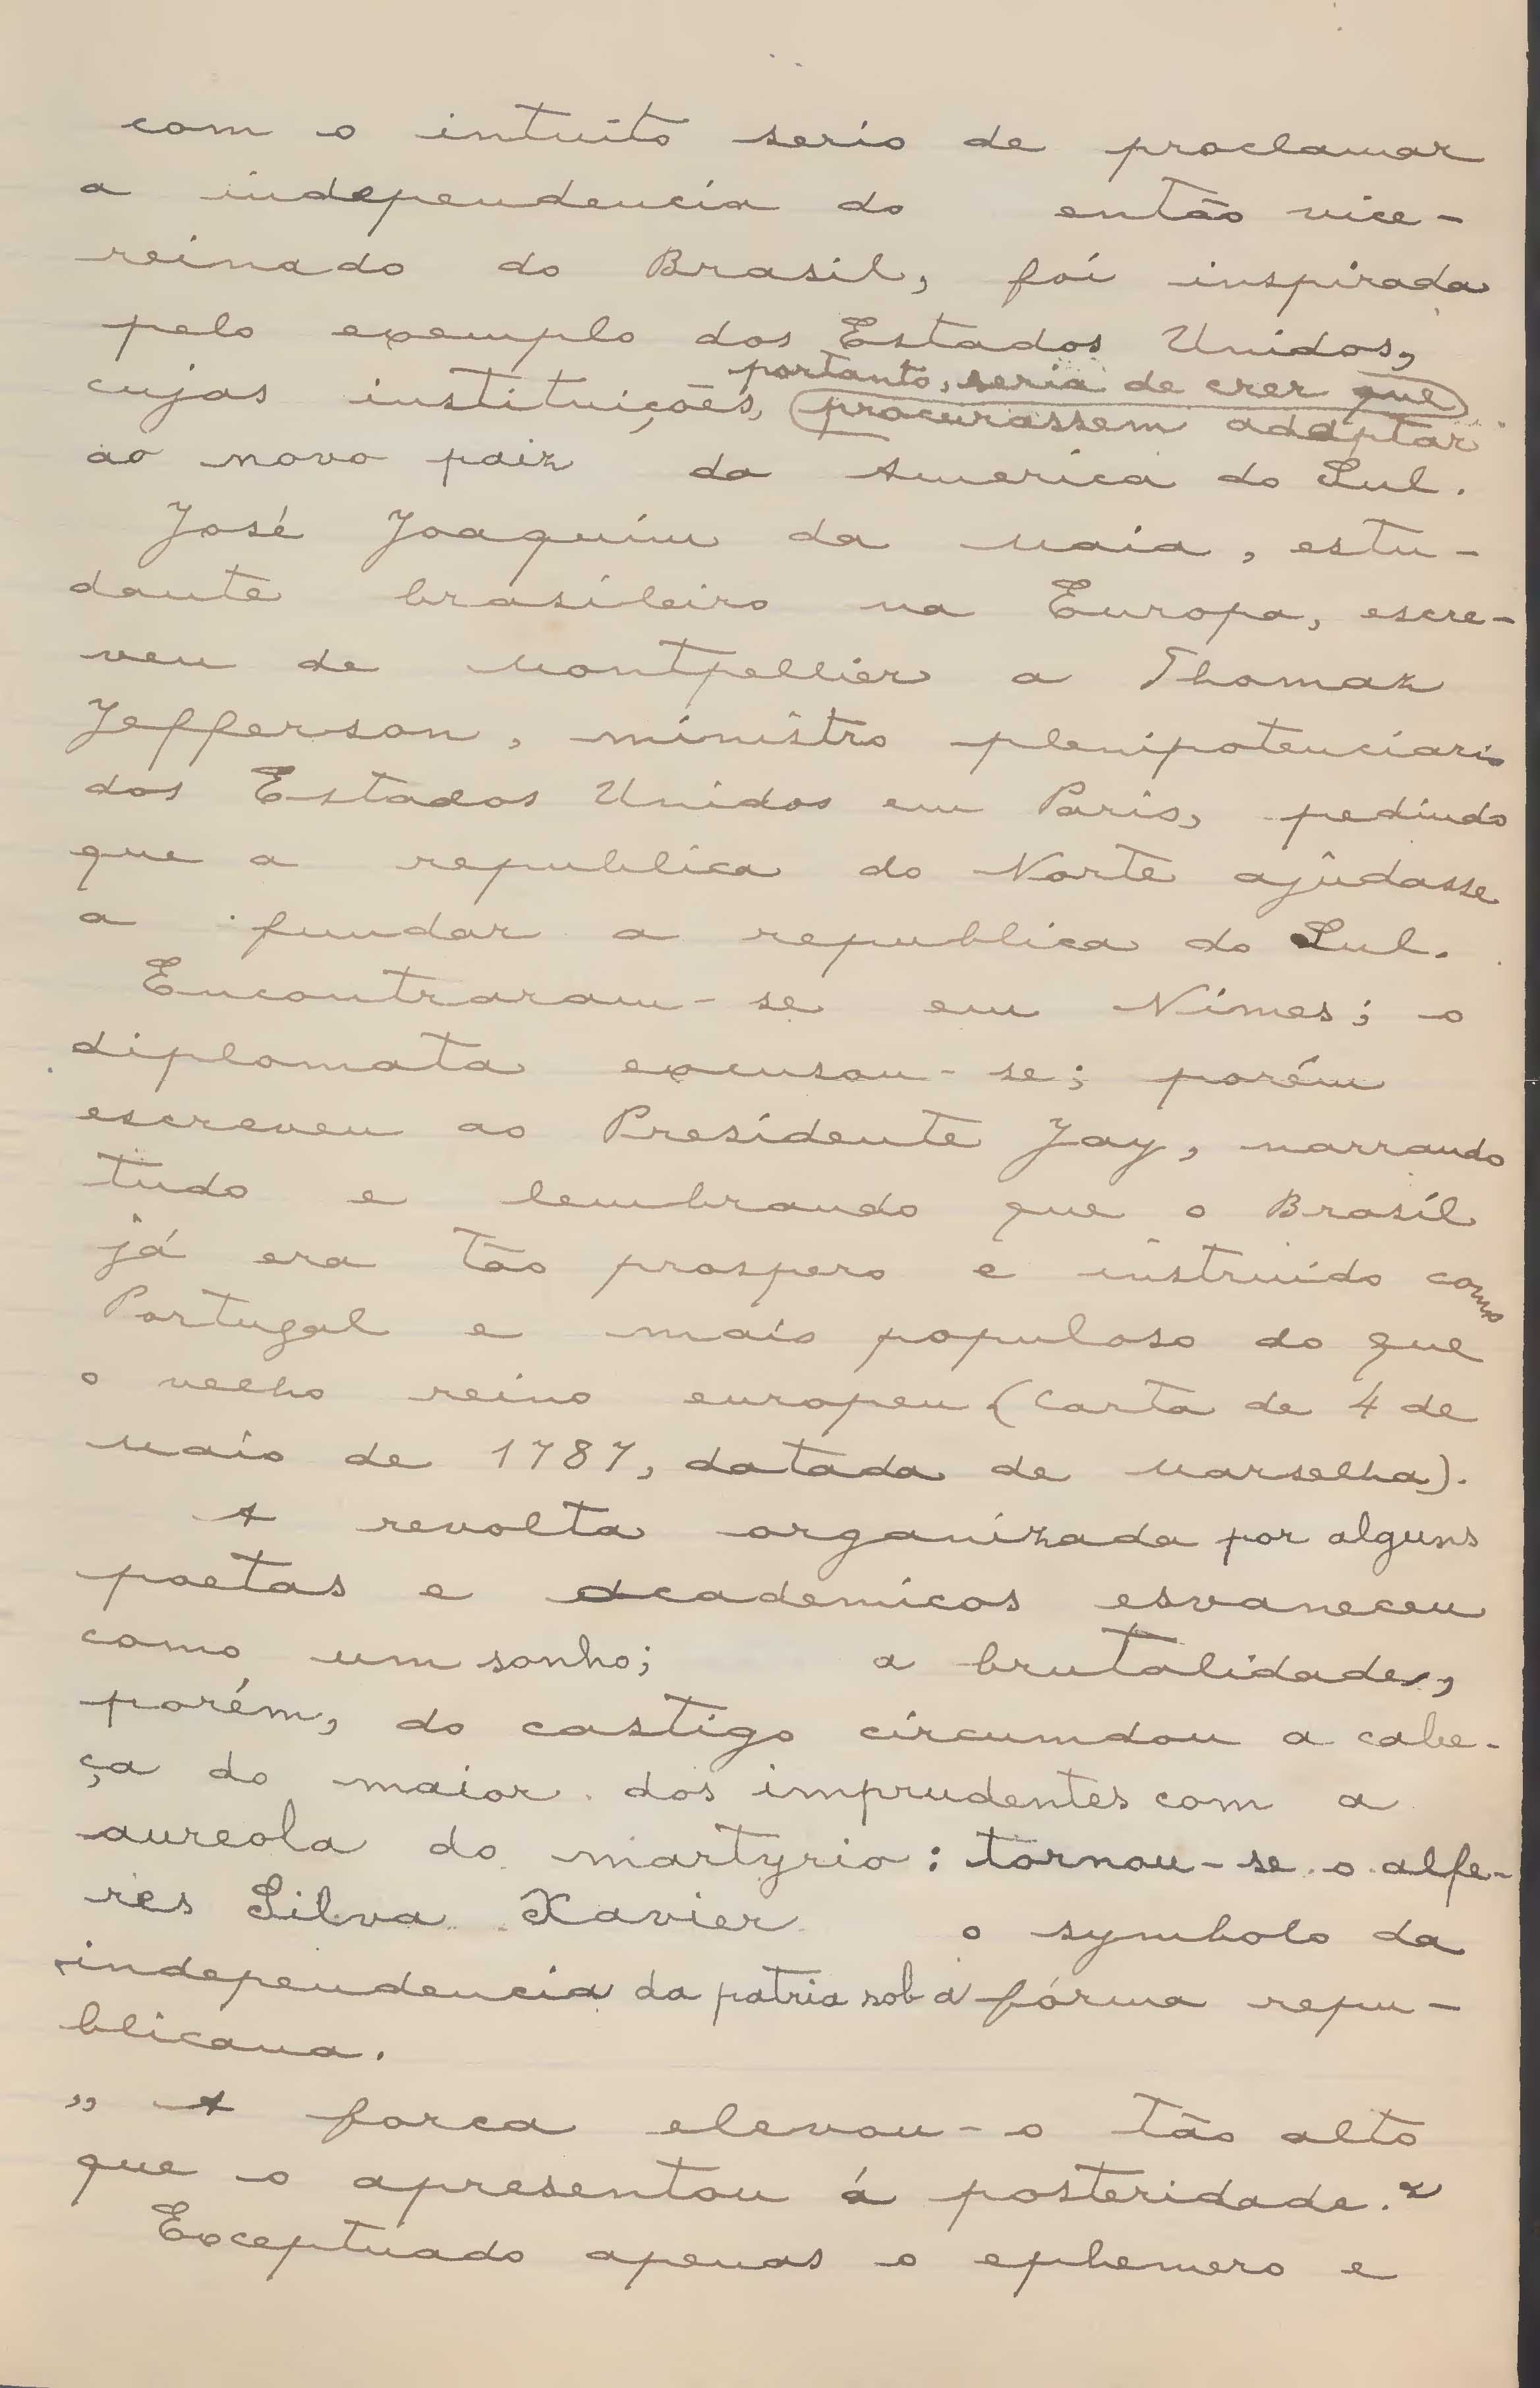 com o intuito serio de proclamar
a independencia do então vice-
reinado do Brasil, foi inspirada
pelo exemplo dos Estados Unidos,
portanto, seria de crer que
cujas instituições, procurassem adaptar
ao novo paiz da America do Sul.
José Joaquim da Maia, estu-
dante brasileiro na Europa, escre-
veu de Montpellier a Thomaz
Jefferson, ministro plenipotenciario
dos Estados Unidos em Paris, pedindo
que a republica do Norte ajudasse
a fundar a republica do Sul.
Encontraram-se em Nimes; o
diplomata excusou-se; porém
escreveu ao Presidente Jay, narrando
tudo e lembrando que o Brasil
já era tão prospero e instruido como
Portugal e mais populoso do que
o velho reino europeu (Carta de 4 de
Maio de 1787, datada de Marselha).
A revolta organizada por alguns
poetas e academicos esvaneceu
como um sonho; a brutalidade,
porém, do castigo circumdou a cabe-
ça do maior dos imprudentes com a
aureola do martyrio: tornou-se o alfe-
res Silva Xavier o symbolo da
independencia da patria sob a fórma repu-
blicana.
„ A forca elevou-o tão alto
que o apresentou á posteridade."
Exceptuado apenas o ephemero e